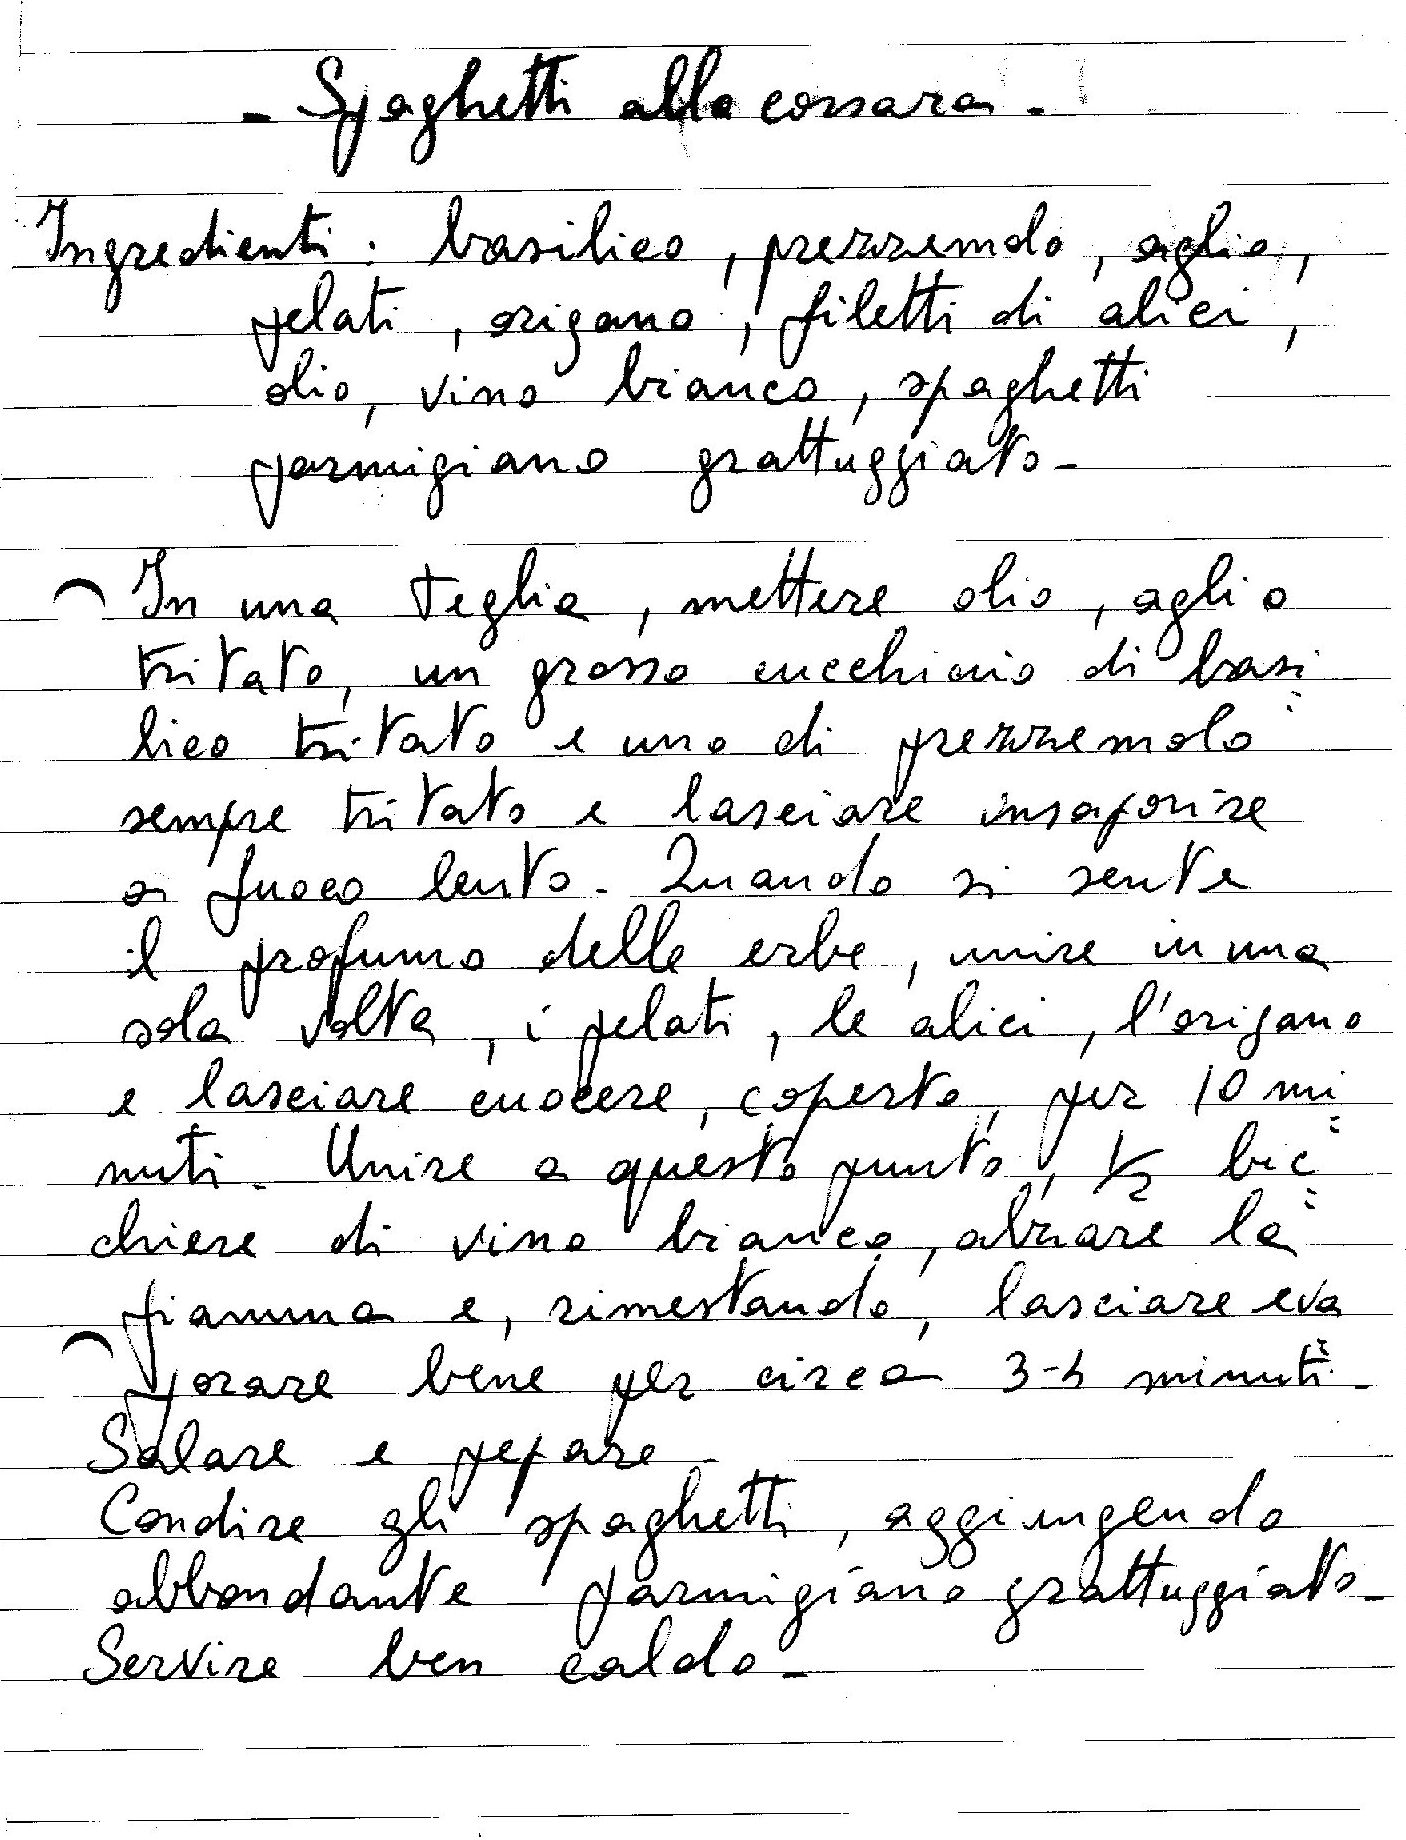 - Spaghetti alla corsara -
Ingredienti : basilico, prezzemolo, aglio,
pelati, origano, filetti di alici,
olio, vino bianco, spaghetti
parmigiano grattuggiato -
In una teglia, mettere olio, aglio
tritato, un grosso cucchiaio di basi=
lico tritato e uno di prezzemolo
sempre tritato e lasciare insaporire
a fuoco lento. Quando si sente
il profumo delle erbe, unire in una
sola volta, i pelati, le alici, l'origano
e lasciare cuocere, coperto, per 10 mi=
nuti. Unire a questo punto, 1/2 bic=
chiere di vino bianco, alzare la
fiamma e, rimestando, lasciare eva=
porare bene per circa 3-4 minuti -
Salare e pepare -
Condire gli spaghetti, aggiungendo
abbondante parmigiano grattuggiato -
Servire ben caldo -